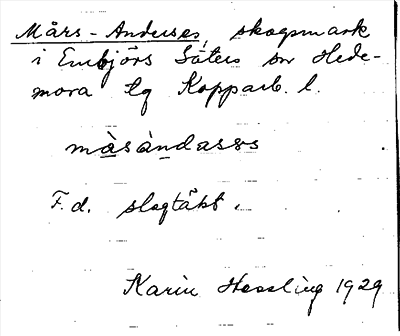 Mårs-Anderses, skogsmark
i Embjörs Säters sn Hede-
mora tg Kopparb. l.
màsàndasəs
F. d. slogtäkt.
Karin Hessling 1929